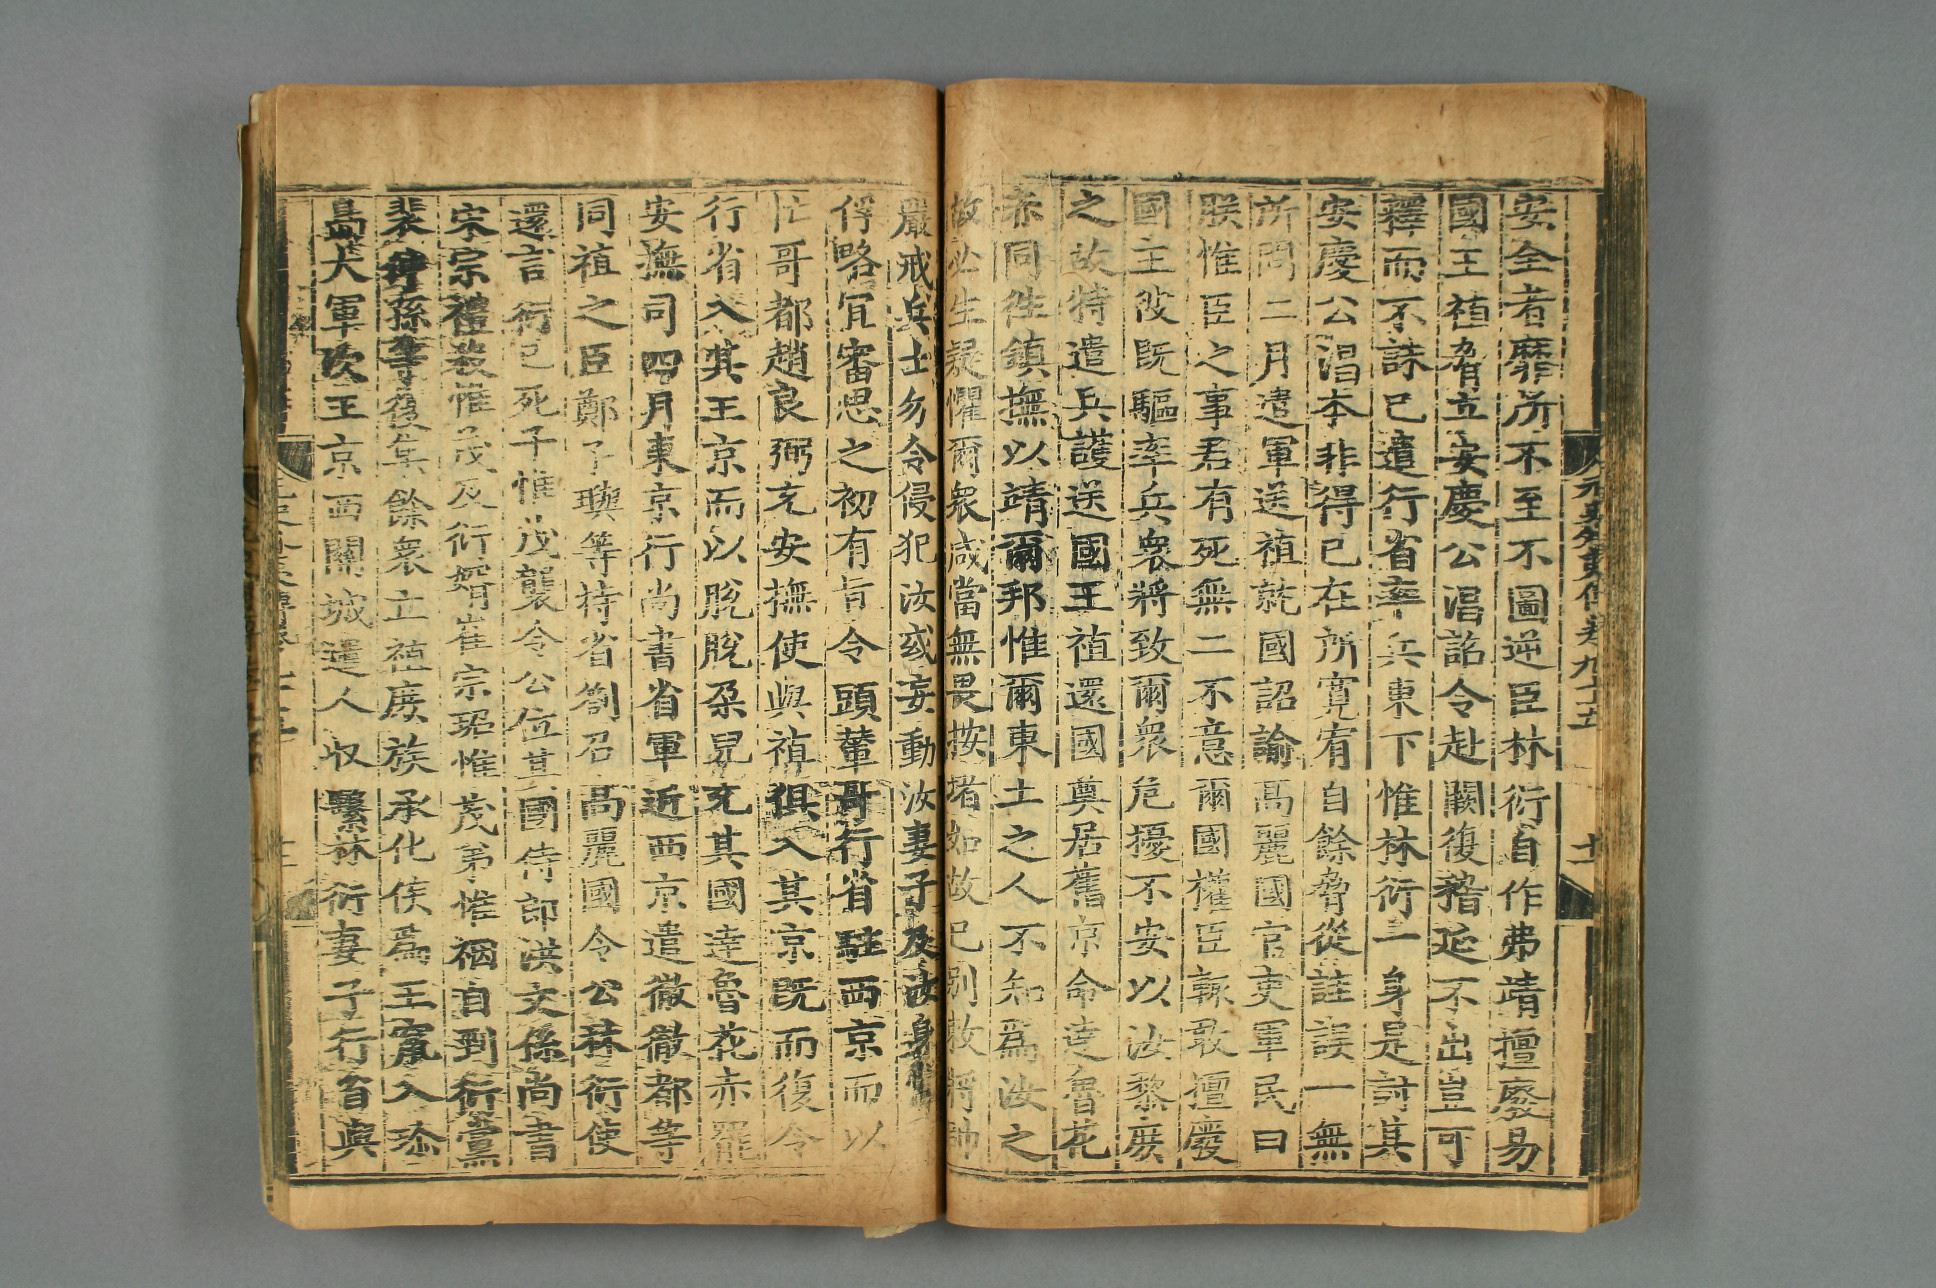 安全者靡所不至不圖逆臣林衍自作弗靖擅廢易
國王禃脅立安慶公淐詔令赴闕復稽延不出豈可
釋而不誅已遣行省率兵東下惟林衍一身是討其
安慶公淐本非得已在所寬宥自餘脅從詿誤一無
所問二月遣軍送禃就國詔諭高麗國官吏軍民曰
朕惟臣之事君有死無二不意爾國權臣輒敢擅廢
國主彼既驅率兵衆將致爾衆危擾不安以汝黎庶
之故特遣兵護送國王禃還國奠居舊京命達魯花
赤同往鎮撫以靖爾邦惟爾東土之人不知爲汝之
故必生疑懼爾衆咸當無畏按堵如故已別敕將帥
嚴戒兵士勿令侵犯汝或妄動汝妻子及汝身
俘略宜審思之初有旨令頭輦哥行省駐西京而以
忙哥都趙良弼充安撫使與禃俱入其京既而復令
行省入其王京而以脫脫朶兒充其國達魯花赤罷
安撫司四月東京行尚書省軍近西京遣徹徹都等
同禃之臣鄭子璵等持省劄召高麗國令公林衍使
還言衍已死子惟茂襲令公位其國侍郎洪文係尚書
宋宗禮殺惟茂及衍壻崔宗玿惟茂弟惟裀自剄衍黨
裴仲孫等復集餘衆立禃庶族承化侯爲王竄入珍
島大軍次王京西關城遣人收繫林衍妻子行省與
元史外夷傳卷九十五
十一